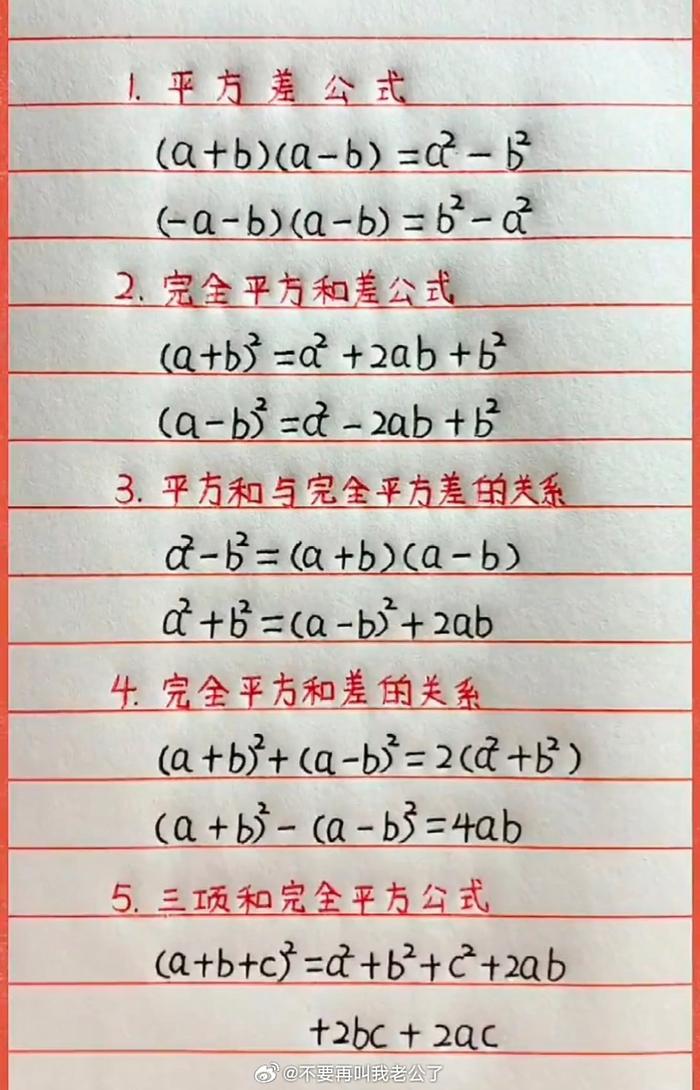 1. 平方差公式
(a+b)(a-b)=a²-b²
(-a-b)(a-b)=b²-a²
2. 完全平方和差公式
(a+b)²=a²+2ab+b²
(a-b)²=a²-2ab+b²
3. 平方和与完全平方差的关系
a²-b²=(a+b)(a-b)
a²+b²=(a-b)²+2ab
4. 完全平方和差的关系
(a+b)²+(a-b)²=2(a²+b²)
(a+b)²-(a-b)²=4ab
5. 三项和完全平方公式
(a+b+c)²=a²+b²+c²+2ab
+2bc+2ac
@不要再叫我老公了